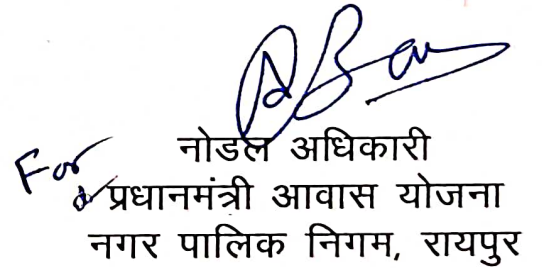 For
नोडल अधिकारी
प्रधानमंत्री आवास योजना
नगर पालिक निगम, रायपुर